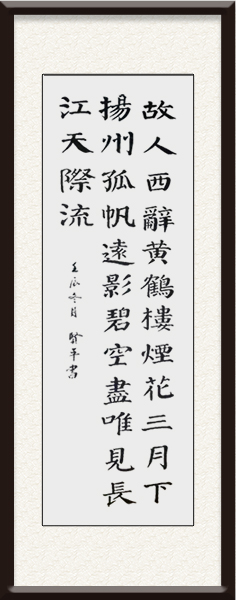 故人西辭黄鶴樓煙花三月下
揚州孤帆遠影碧空盡唯見長
江天際流
壬辰冬月 平書